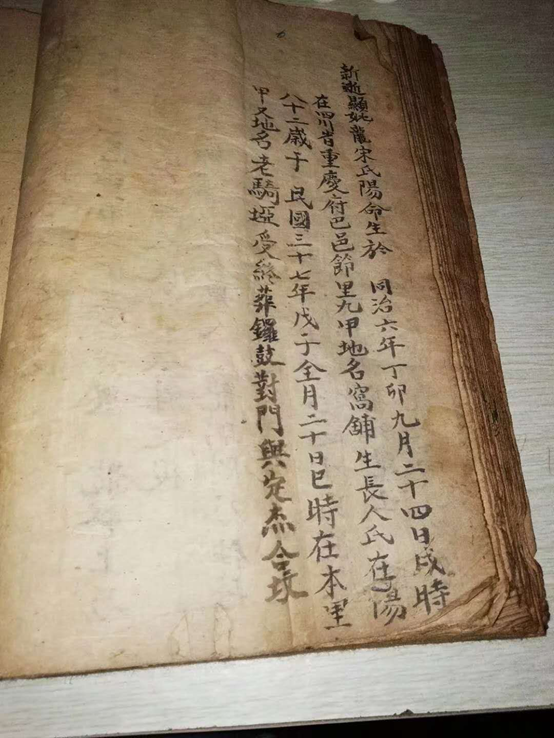 新逝顯妣龍宋氏陽命生於 同治六年丁卯九月二十四日戌時
在四川省重慶府巴邑節里九甲地名窩舖生長人氏在陽
八十二歲于 民國三十七年戊子全月二十日巳時在本里
甲又地名老騎埡受終葬鑼鼓對門與定杰合坟